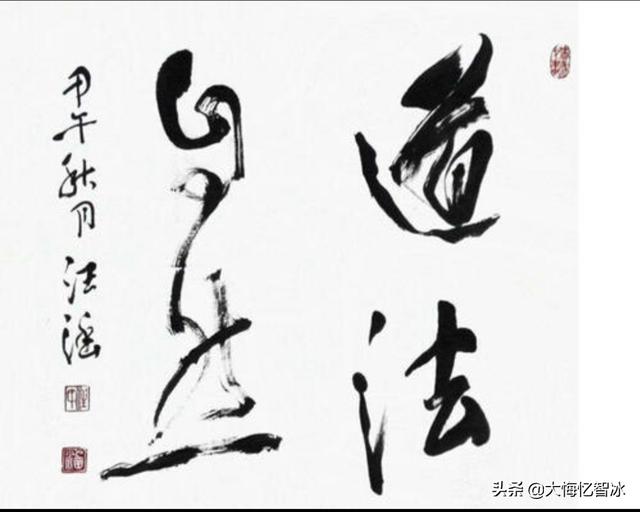 道法
自然
甲午秋月汪
头条 @大悔忆智冰